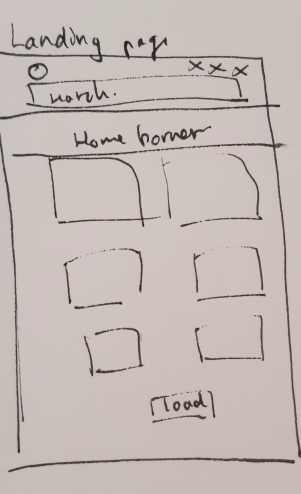 Landing page
x x x
search.
Home banner
load